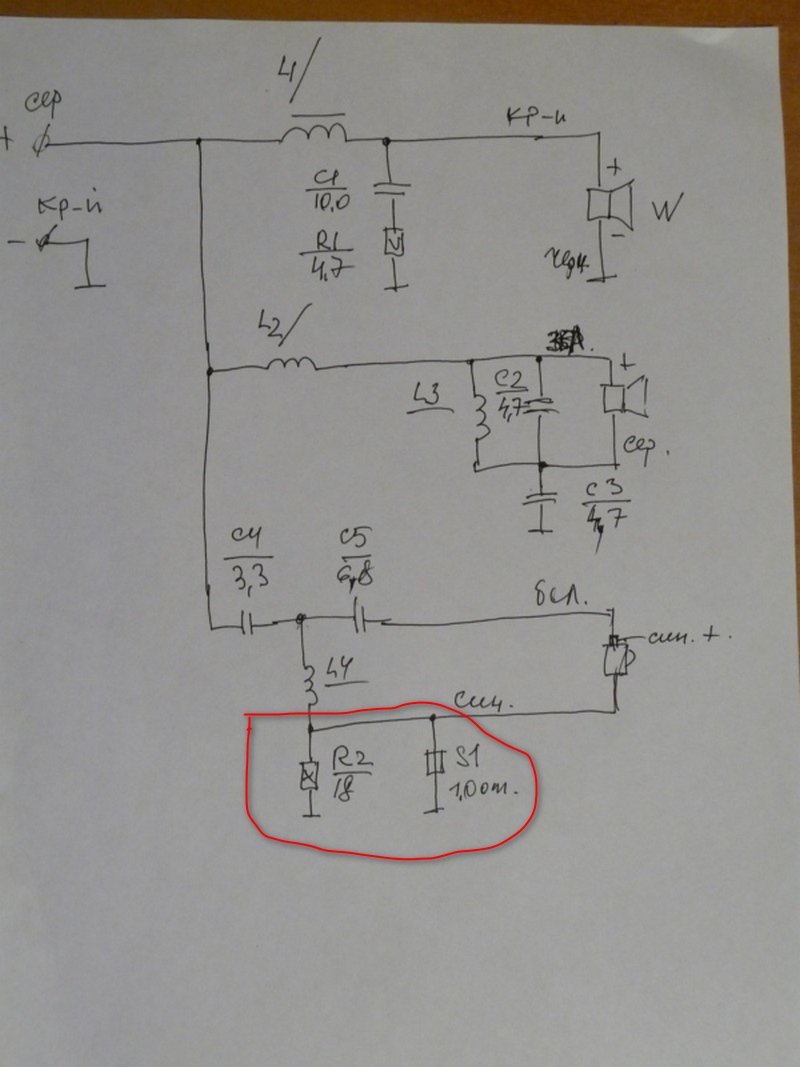 сер
+
L1
кр-й
C1
10,0
+
W
кр-й
R1
4,7
-
-
черн.
L2
+
C2
4,7
L3
сер.
C3
4,7
C4
3,3
C5
6,8
бел.
син. +.
L4
син.
R2
18
S1